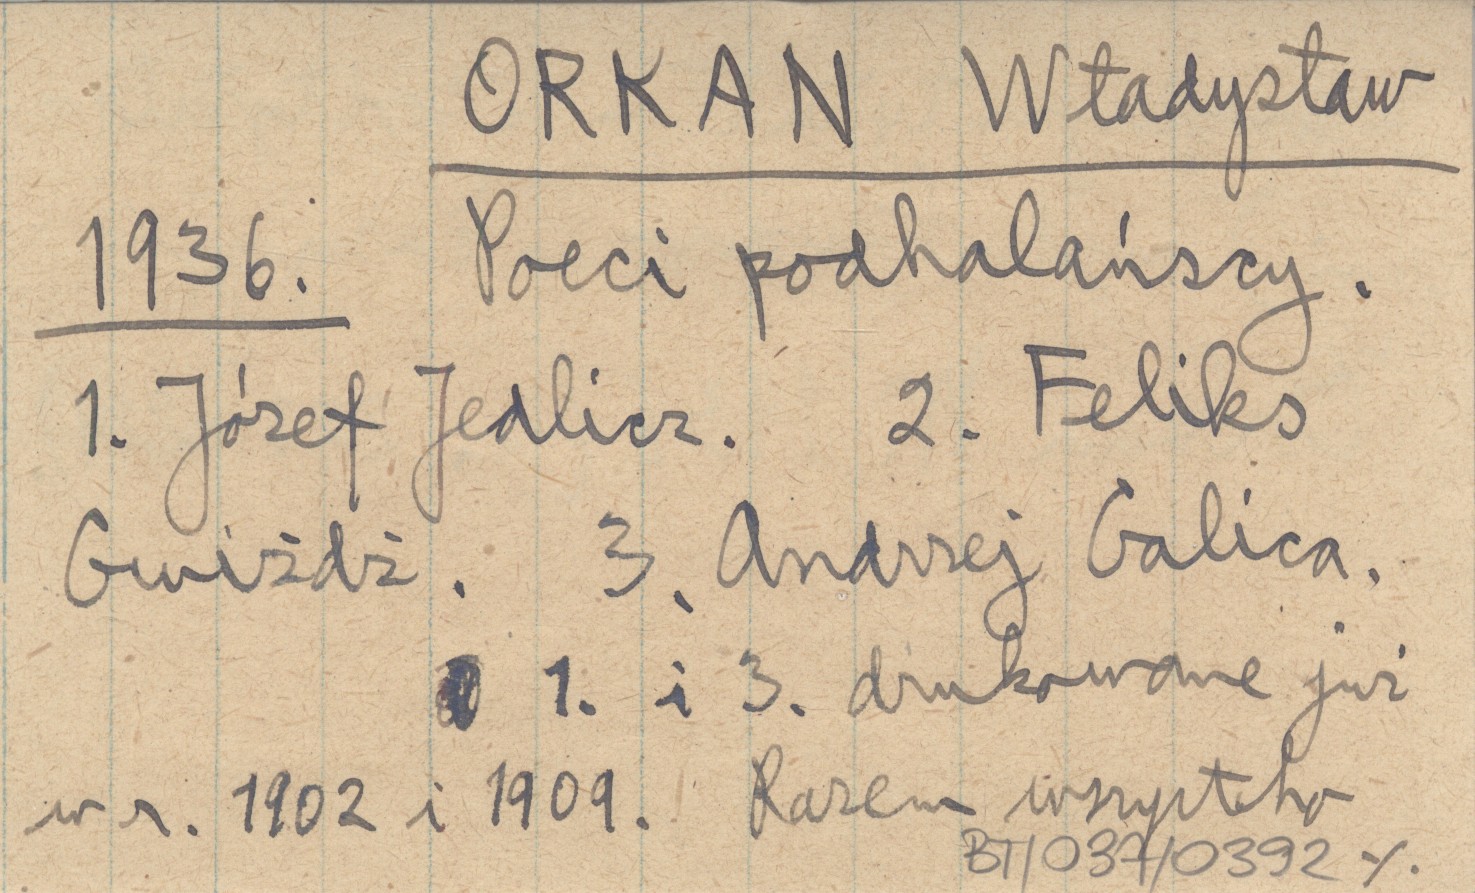 ORKAN Władysław
1936. Poeci podhalańscy.
1. Józef Jedlicz. 2. Feliks
Gwiżdż. 3. Andrzej Galica.
1. i 3. drukowane już
w r. 1902 i 1909. Razem wszystko
BT/037/0392 ·/.